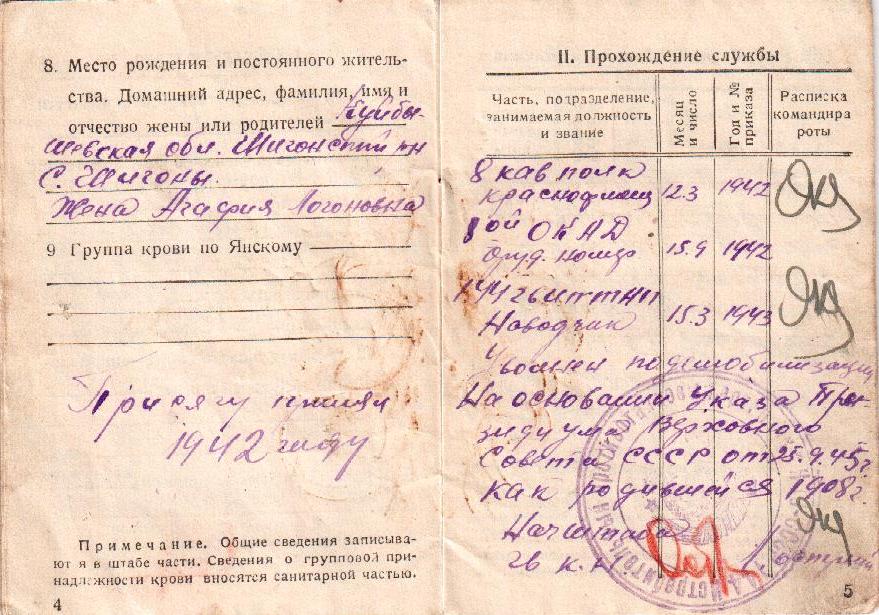 8. Место рождения и постоянного житель-
ства. Домашний адрес, фамилия, имя и
отчество жены или родителей Куйбы-
шевская обл. Шигонский рн
с. Шигоны.
Жена Агафия Логоновна
9 Группа крови по Янскому
Присягу принял
1942 году
Примечание. Общие сведения записыва-
ют я в штабе части. Сведения о групповой при-
надлежности крови вносятся санитарной частью.
4
II. Прохождение службы
Часть, подразделение, занимаемая должность и звание
Месяц и число
Год и № приказа
Расписка командира роты
8 кав полк
краснофлоец 12.3 1942
8ой ОКАД
Оруд. номер 15.9 1942
144 гв
Наводчик 15.3 1943
Уволен по демобилизации
На основании Указа Пре-
зидиума Верховного
Совета СССР от 25.9.45 г.
как родившейся 1908 г.
Нач штаба
гв
5